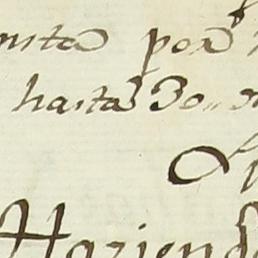 nsta por
hasta 30
Haziend